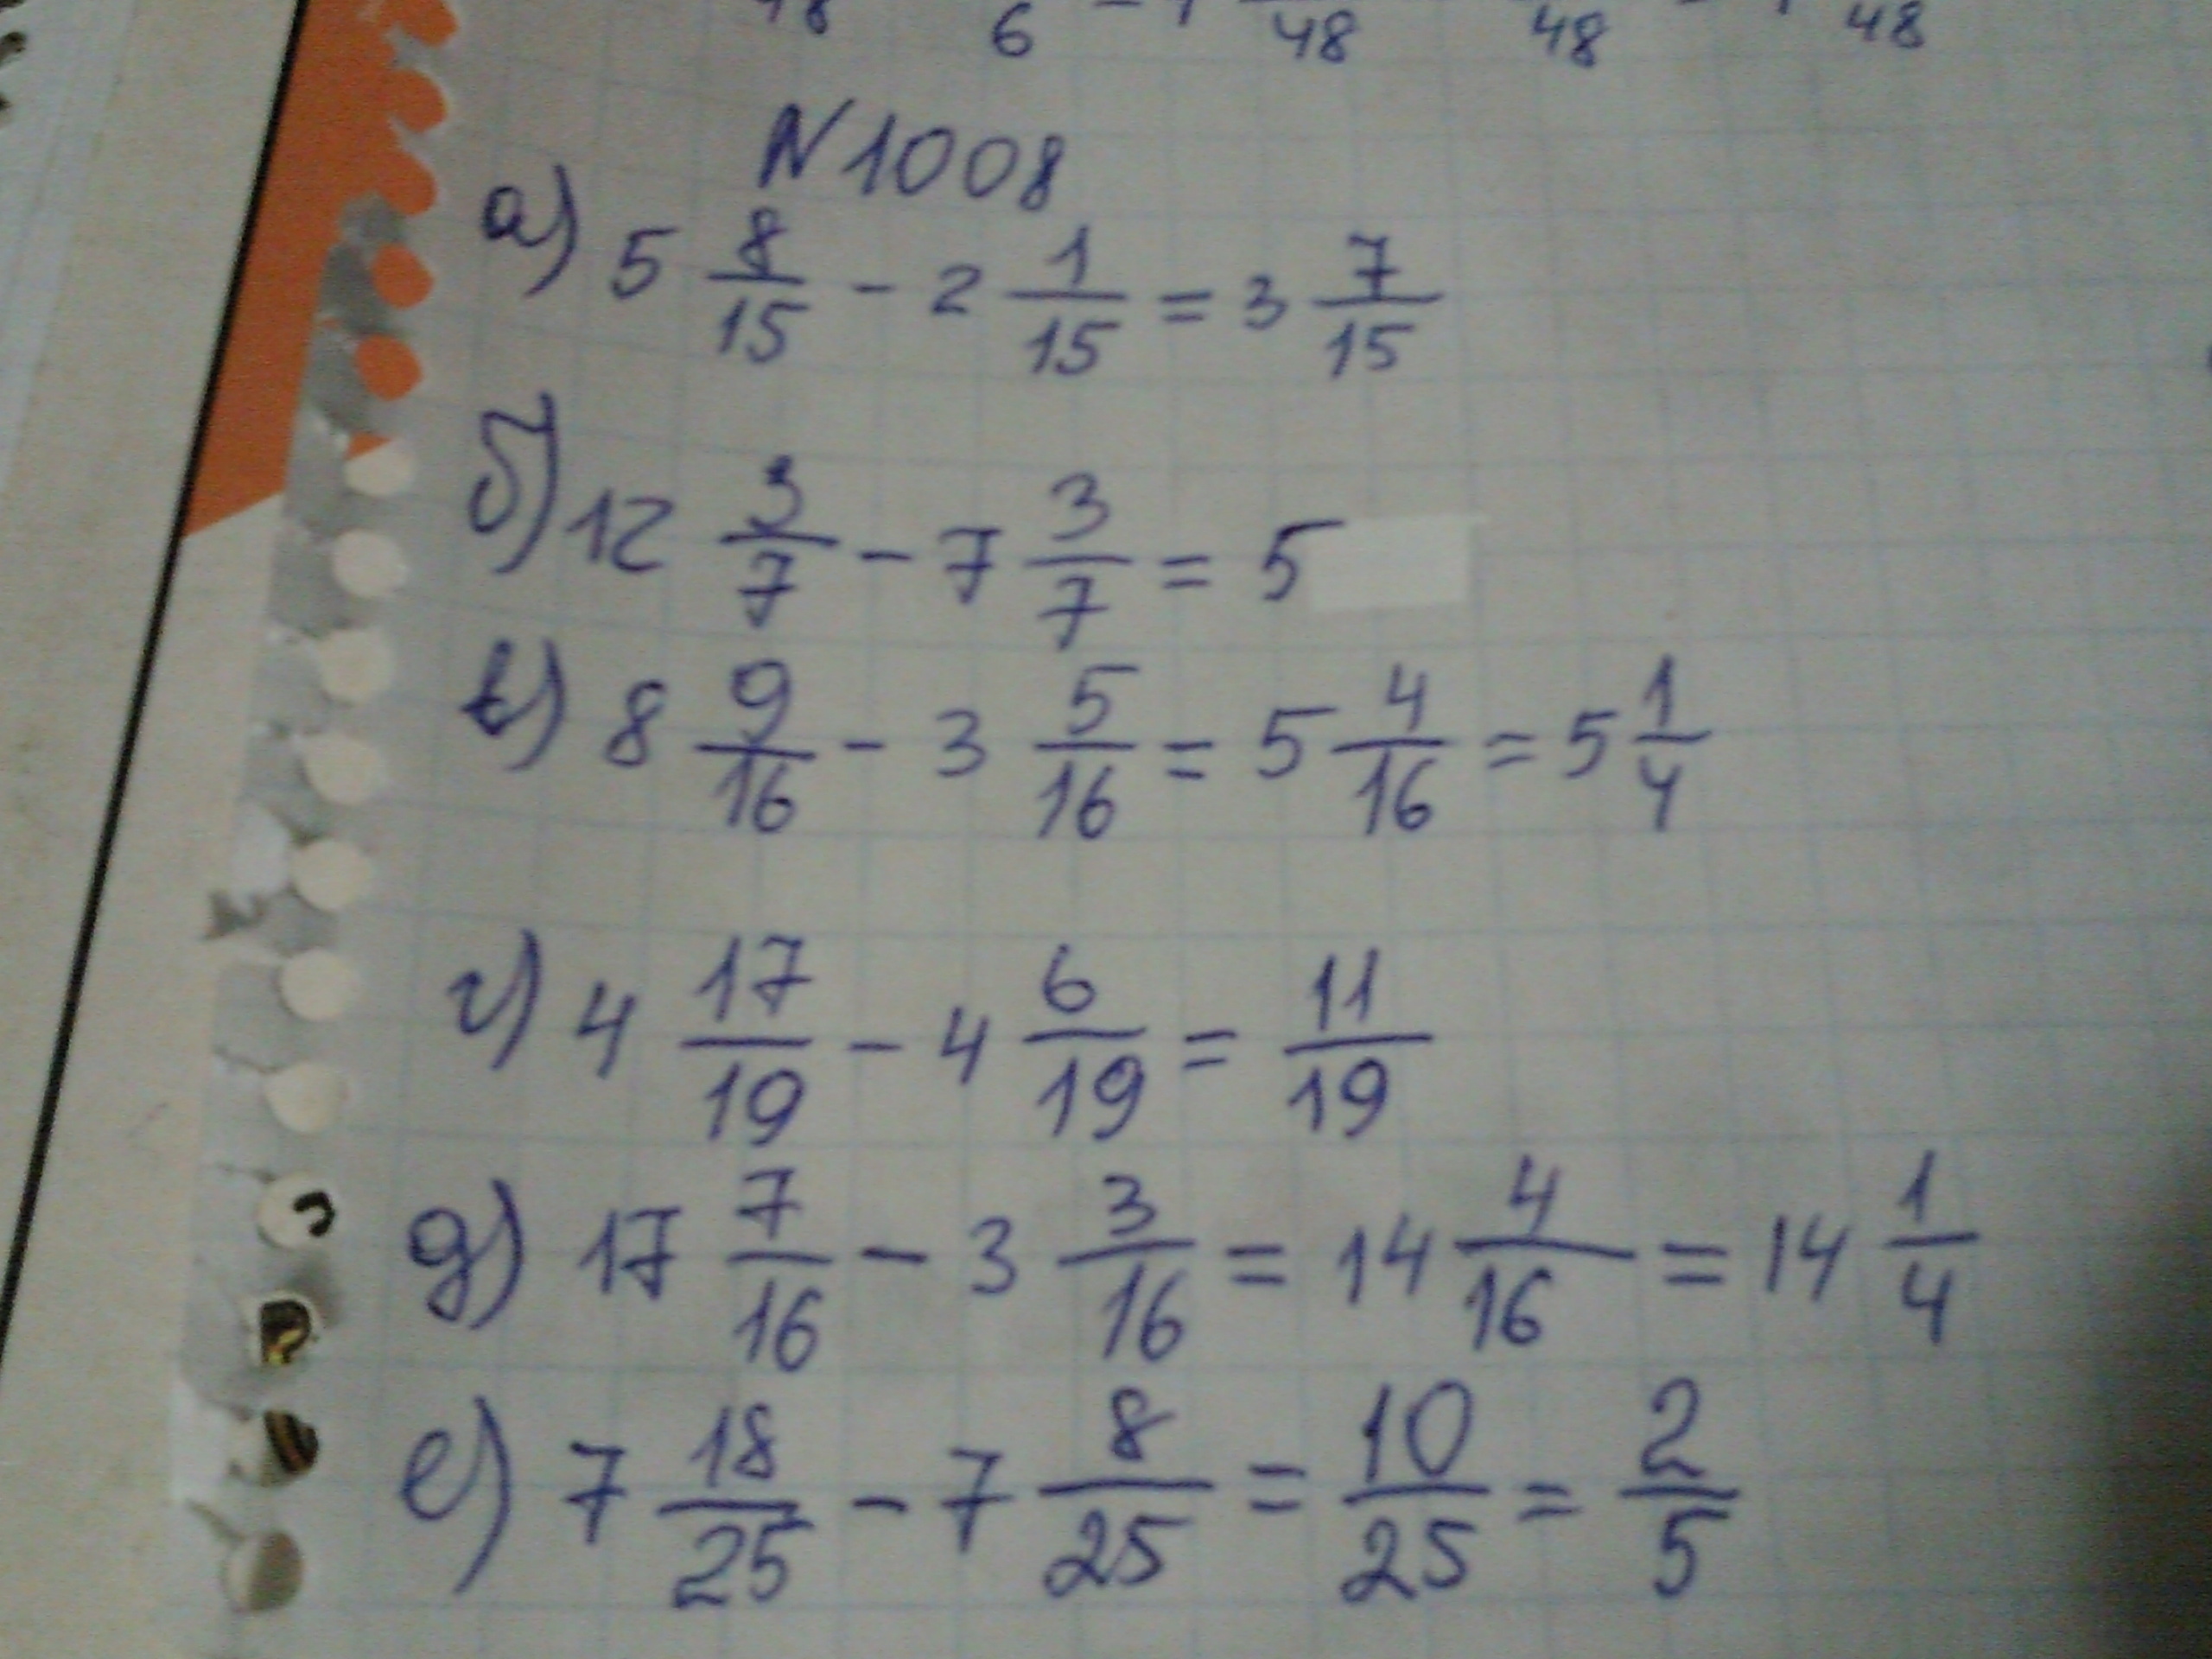 48 6 48 48 48
N 1008
а) 5 8/15 - 2 1/15 = 3 7/15
б) 12 3/7 - 7 3/7 = 5
в) 8 9/16 - 3 5/16 = 5 4/16 = 5 1/4
г) 4 17/19 - 4 6/19 = 11/19
д) 17 7/16 - 3 3/16 = 14 4/16 = 14 1/4
е) 7 18/25 - 7 8/25 = 10/25 = 2/5